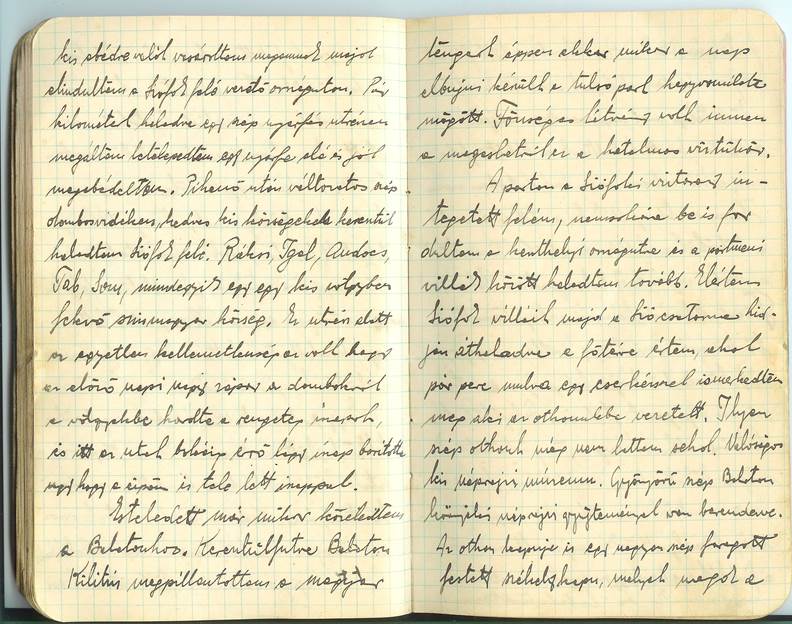 kis ebédre valót vásároltam magamnak majd
elindultam a Siófok felé vezető országuton. Pár
kilométert haladva egy szép nyárfás utrészen
megáltam letelepedtem egy nyárfa alá és jól
megebédeltem. Pihenő után változatos szép
dombosvidéken, kedves kis községeken keresztül
haladtam Siófok felé. Ráksi, Igal, Andocs,
Tab, Som, mindegyik egy egy kis völgyben
fekvő szinmagyar község. Ez utrész alatt
az egyetlen kellemetlenség az volt hogy
az előző napi nagy zápor a dombokról
a völgyekbe hordta a rengeteg iszapot,
és itt az utat bokáig érő lágy iszap borította
ugy hogy a cipőm is tele lett iszappal.
Esteledett már mikor közeledtem
a Balatonhoz. Keresztülfutva Balaton
Kilitin megpillantottam a magyar
tengert éppen akkor mikor a nap
elbujni készült a tulsó part hegyvonulata
mögött. Fönséges látvány volt innen
a magaslatról ez a hatalmas viztükör.
A parton a Siófoki viztorony in-
tegetett felém, nemsokára be is for
dultam a keszthelyi országutra és a partmenti
villák között haladtam tovább. Elértem
Siófok villáit majd a Siócsatorna hid-
ján áthaladva a főtérre értem, ahol
pár perc mulva egy cserkésszel ismerkedtem
meg aki az otthonukba vezetett. Ilyen
szép othont még nem láttam sehol. Valóságos
kis néprajzi múzeum. Gyönyörű szép Balaton
környéki néprajzi gyűjteménnyel van berendezve.
Az othon kapuja is egy nagyon szép faragott
festett székelykapu, melyet magok a